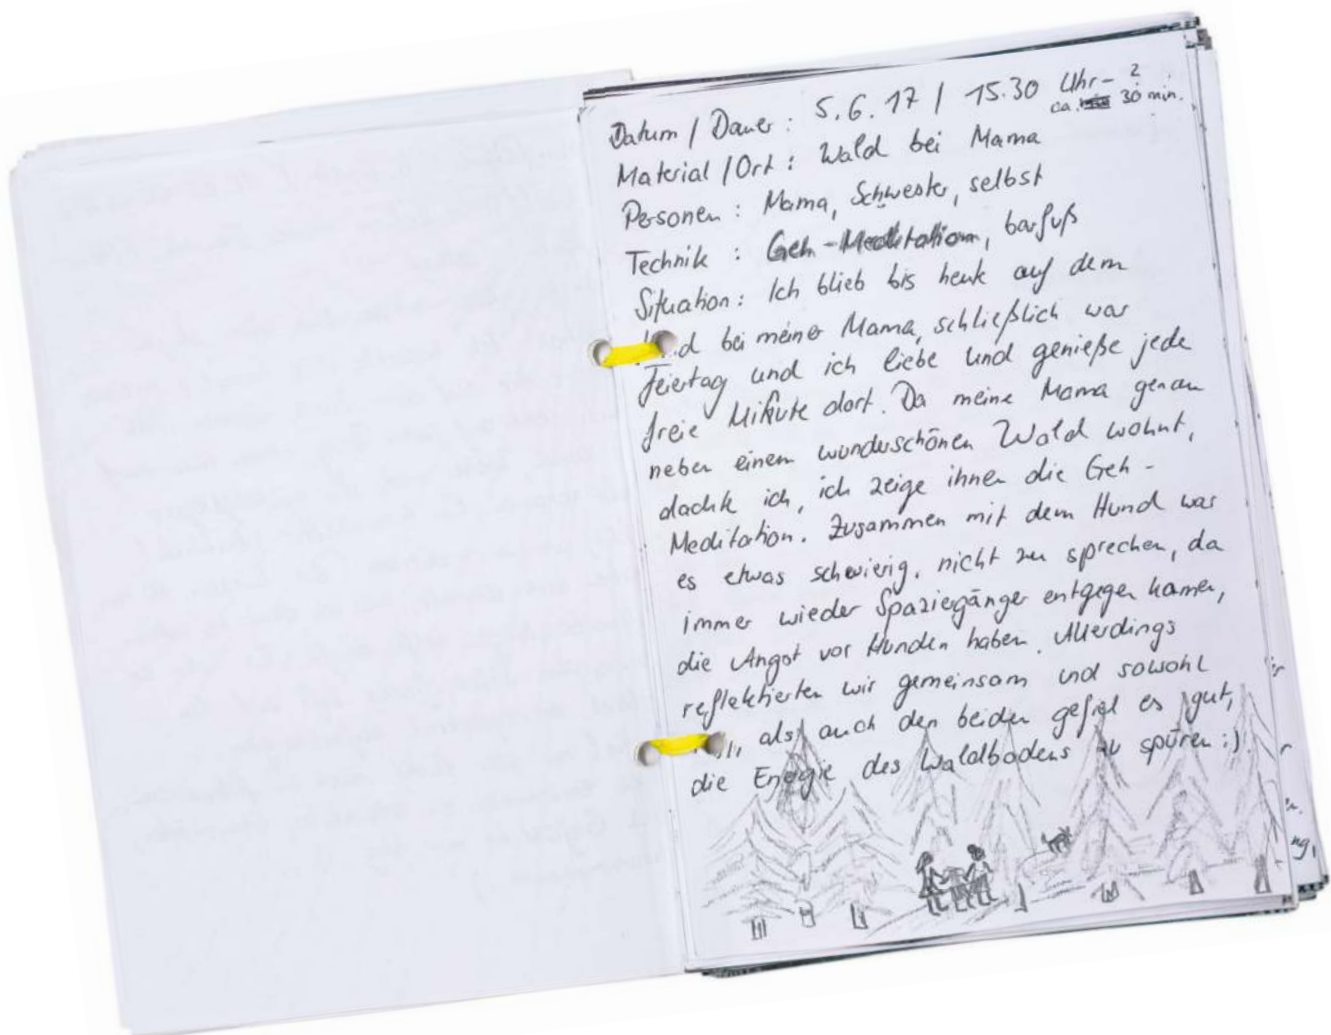 Datum / Dauer : 5.6.17 / 15.30 Uhr - ?
ca. 30 min.
Material / Ort : Wald bei Mama
Personen : Mama, Schwester, selbst
Technik : Geh-Meditation, barfuß
Situation : Ich blieb bis heute auf dem
bei meiner Mama, schließlich war
Feiertag und ich liebe und genieße jede
freie Minute dort. Da meine Mama genau
neben einem wunderschönen Wald wohnt,
dachte ich, ich zeige ihnen die Geh-
Meditation. Zusammen mit dem Hund war
es etwas schwierig, nicht zu sprechen, da
immer wieder Spaziergänger entgegen kamen,
die Angst vor Hunden haben. Allerdings
reflektierten wir gemeinsam und sowohl
als auch den beiden gefiel es gut,
die Energie des Waldbodens zu spüren :).